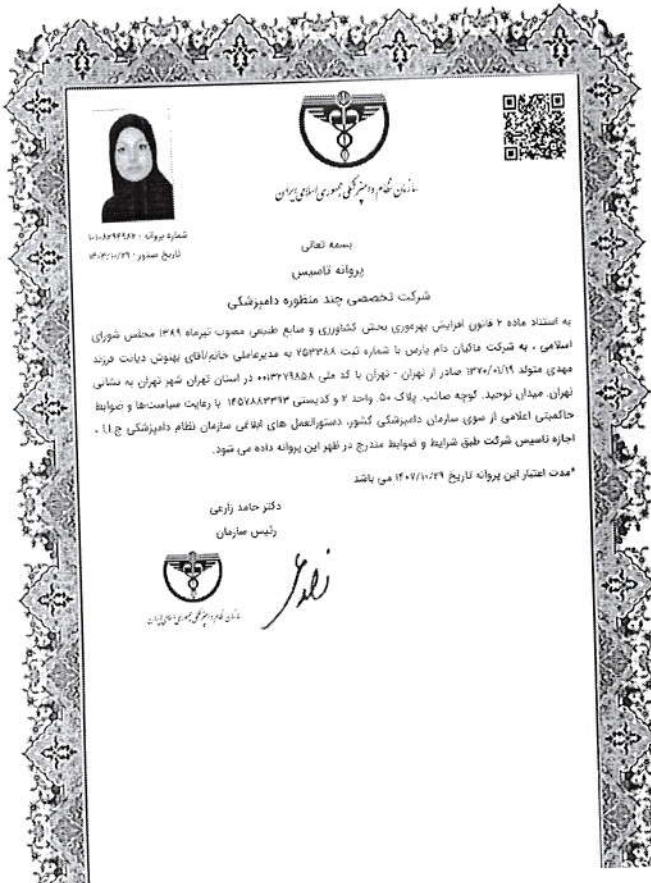 سازمان نظام دامپزشکی جمهوری اسلامی ایران
شماره پروانه : ۱۰۱۰۸۲۹۴۹۸۲
تاریخ صدور : ۱۴۰۳/۱۰/۲۹
بسمه تعالی
پروانه تاسیس
شرکت تخصصی چند منظوره دامپزشکی
به استناد ماده ۲ قانون افزایش بهره‌وری بخش کشاورزی و منابع طبیعی مصوب تیرماه ۱۳۸۹ مجلس شورای
اسلامی ، به شرکت ماکیان دام پارس با شماره ثبت ۲۵۳۳۸۸ به مدیرعاملی خانم/آقای بهنوش دیانت فرزند
مهدی متولد ۱۳۷۰/۰۱/۱۹ صادر از تهران - تهران با کد ملی ۰۰۱۳۲۷۹۸۵۸ در استان تهران شهر تهران به نشانی
تهران، میدان توحید، کوچه صائب، پلاک ۵۰، واحد ۲ و کدپستی ۱۴۵۷۸۸۳۳۹۳ با رعایت سیاست‌ها و ضوابط
حاکمیتی اعلامی از سوی سازمان دامپزشکی کشور، دستورالعمل های ابلاغی سازمان نظام دامپزشکی ج.ا.ا ،
اجازه تاسیس شرکت طبق شرایط و ضوابط مندرج در ظهر این پروانه داده می شود.
*مدت اعتبار این پروانه تاریخ ۱۴۰۷/۱۰/۲۹ می باشد
دکتر حامد زارعی
رئیس سازمان
سازمان نظام دامپزشکی جمهوری اسلامی ایران